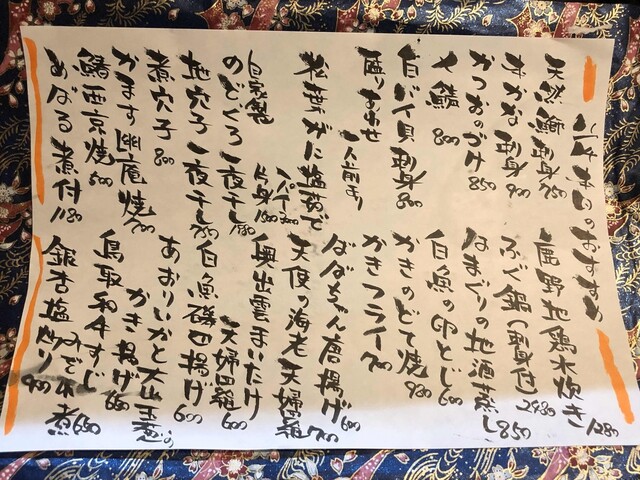 本日のおすすめ
天然鰤刺身 750
まかな刺身 900
かつおのづけ 850
〆鯖 800
白バイ貝刺身 800
盛り合わせ 一人前より
松葉がに塩茹で
片身 1500
自家製
のどぐろ一夜干し 1780
地穴子一夜干し 750
煮穴子 800
かます幽庵焼 700
鰆西京焼 500
めばる煮付 1180
鹿野地鶏水炊き 1280
ふぐ鍋(刺身付) 2480
はまぐりの地酒蒸し 850
白魚の卵とじ 600
かきのどて焼 980
かきフライ 700
ばばちゃん唐揚げ 600
天使の海老天婦羅 700
奥出雲まいたけ
天婦羅 600
白魚磯辺揚げ 600
あおりいかと大山玉葱の
かき揚げ 650
鳥取和牛すじ
みぞれ煮 650
銀杏塩炒り 400